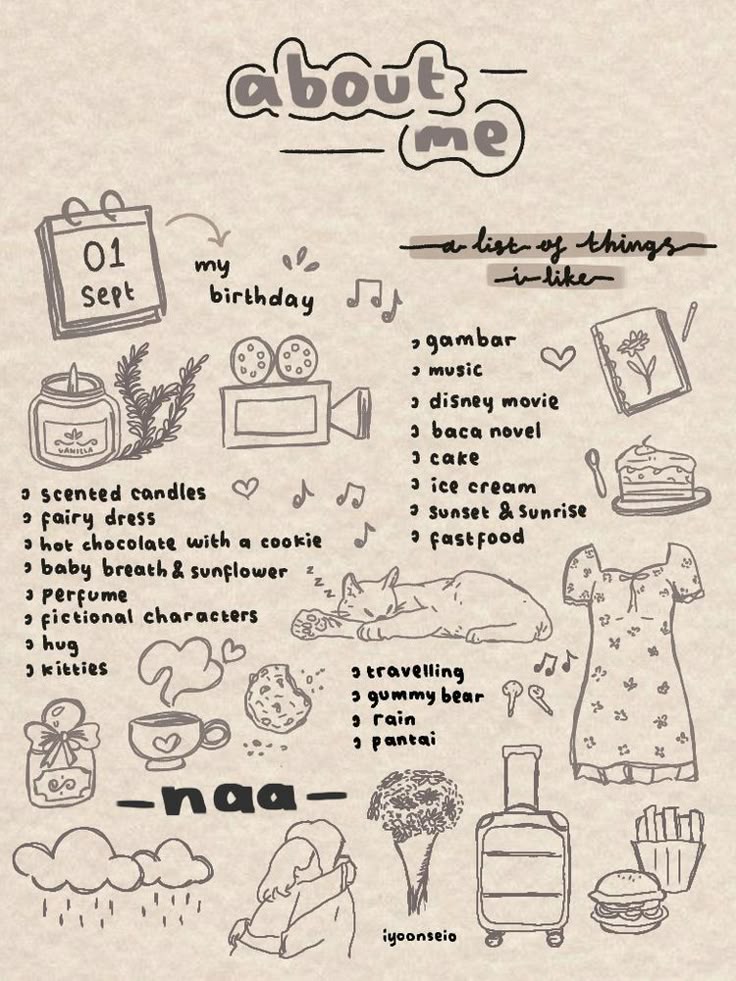 about
me
01
Sept
my
birthday
a list of things
i like
gambar
music
disney movie
baca novel
cake
ice cream
sunset & sunrise
fastfood
VANILLA
scented candles
fairy dress
hot chocolate with a cookie
baby breath & sunflower
perfume
fictional characters
hug
kitties
z z z
travelling
gummy bear
rain
pantai
naa
iyoonseio